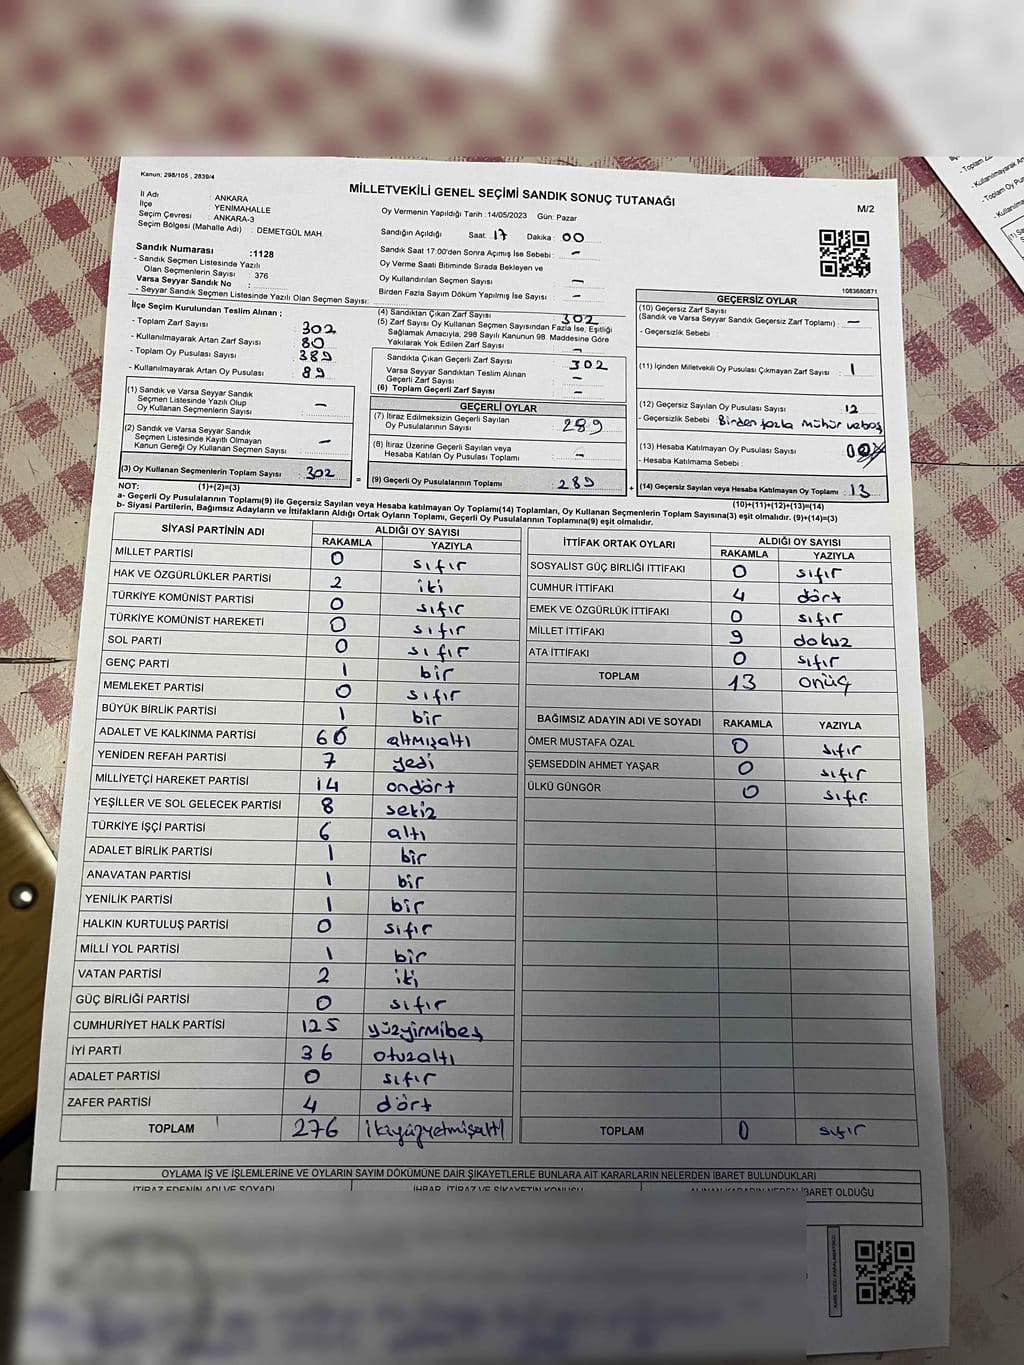 Kanun; 298/105 , 2839/4
MİLLETVEKİLİ GENEL SEÇİMİ SANDIK SONUÇ TUTANAĞI
M/2
İl Adı : ANKARA
İlçe : YENİMAHALLE
Seçim Çevresi : ANKARA-3
Seçim Bölgesi (Mahalle Adı) : DEMETGÜL MAH.
Oy Vermenin Yapıldığı Tarih : 14/05/2023 Gün: Pazar
Sandığın Açıldığı Saat: 17 Dakika: 00
Sandık Saat 17:00'den Sonra Açımış İse Sebebi : -
Oy Verme Saati Bitiminde Sırada Bekleyen ve
Oy Kullandırılan Seçmen Sayısı : -
Birden Fazla Sayım Döküm Yapılmış İse Sayısı : -
Sandık Numarası :1128
- Sandık Seçmen Listesinde Yazılı
Olan Seçmenlerin Sayısı : 376
Varsa Seyyar Sandık No :
- Seyyar Sandık Seçmen Listesinde Yazılı Olan Seçmen Sayısı:
1083680871
İlçe Seçim Kurulundan Teslim Alınan ;
- Toplam Zarf Sayısı : 302
- Kullanılmayarak Artan Zarf Sayısı : 80
- Toplam Oy Pusulası Sayısı : 389
- Kullanılmayarak Artan Oy Pusulası : 89
(1) Sandık ve Varsa Seyyar Sandık
Seçmen Listesinde Yazılı Olup
Oy Kullanan Seçmenlerin Sayısı : -
(2) Sandık ve Varsa Seyyar Sandık
Seçmen Listesinde Kayıtlı Olmayan
Kanun Gereği Oy Kullanan Seçmen Sayısı : -
(3) Oy Kullanan Seçmenlerin Toplam Sayısı : 302
(4) Sandıktan Çıkan Zarf Sayısı : 302
(5) Zarf Sayısı Oy Kullanan Seçmen Sayısından Fazla İse, Eşitliği
Sağlamak Amacıyla; 298 Sayılı Kanunun 98. Maddesine Göre
Yakılarak Yok Edilen Zarf Sayısı : -
Sandıkta Çıkan Geçerli Zarf Sayısı : 302
Varsa Seyyar Sandıktan Teslim Alınan
Geçerli Zarf Sayısı : -
(6) Toplam Geçerli Zarf Sayısı : -
GEÇERLİ OYLAR
(7) İtiraz Edilmeksizin Geçerli Sayılan
Oy Pusulalarının Sayısı : 289
(8) İtiraz Üzerine Geçerli Sayılan veya
Hesaba Katılan Oy Pusulası Toplamı : -
= (9) Geçerli Oy Pusulalarının Toplamı : 289
GEÇERSİZ OYLAR
(10) Geçersiz Zarf Sayısı
(Sandık ve Varsa Seyyar Sandık Geçersiz Zarf Toplamı) : -
- Geçersizlik Sebebi :
(11) İçinden Milletvekili Oy Pusulası Çıkmayan Zarf Sayısı : 1
(12) Geçersiz Sayılan Oy Pusulası Sayısı : 12
- Geçersizlik Sebebi : Birden fazla mühür ve boş
(13) Hesaba Katılmayan Oy Pusulası Sayısı : 0
- Hesaba Katılmama Sebebi :
+ (14) Geçersiz Sayılan veya Hesaba Katılmayan Oy Toplamı : 13
NOT: (1)+(2)=(3)
(10)+(11)+(12)+(13)=(14)
a- Geçerli Oy Pusulalarının Toplamı(9) ile Geçersiz Sayılan veya Hesaba katılmayan Oy Toplamı(14) Toplamları, Oy Kullanan Seçmenlerin Toplam Sayısına(3) eşit olmalıdır. (9)+(14)=(3)
b- Siyasi Partilerin, Bağımsız Adayların ve İttifakların Aldığı Ortak Oyların Toplamı, Geçerli Oy Pusulalarının Toplamına(9) eşit olmalıdır.
SİYASİ PARTİNİN ADI ALDIĞI OY SAYISI
RAKAMLA YAZIYLA
MİLLET PARTİSİ 0 sıfır
HAK VE ÖZGÜRLÜKLER PARTİSİ 2 iki
TÜRKİYE KOMÜNİST PARTİSİ 0 sıfır
TÜRKİYE KOMÜNİST HAREKETİ 0 sıfır
SOL PARTİ 0 sıfır
GENÇ PARTİ 1 bir
MEMLEKET PARTİSİ 0 sıfır
BÜYÜK BİRLİK PARTİSİ 1 bir
ADALET VE KALKINMA PARTİSİ 66 altmışaltı
YENİDEN REFAH PARTİSİ 7 yedi
MİLLİYETÇİ HAREKET PARTİSİ 14 ondört
YEŞİLLER VE SOL GELECEK PARTİSİ 8 sekiz
TÜRKİYE İŞÇİ PARTİSİ 6 altı
ADALET BİRLİK PARTİSİ 1 bir
ANAVATAN PARTİSİ 1 bir
YENİLİK PARTİSİ 1 bir
HALKIN KURTULUŞ PARTİSİ 0 sıfır
MİLLİ YOL PARTİSİ 1 bir
VATAN PARTİSİ 2 iki
GÜÇ BİRLİĞİ PARTİSİ 0 sıfır
CUMHURİYET HALK PARTİSİ 125 yüzyirmibeş
İYİ PARTİ 36 otuzaltı
ADALET PARTİSİ 0 sıfır
ZAFER PARTİSİ 4 dört
TOPLAM 276 ikiyüzyetmişaltı
İTTİFAK ORTAK OYLARI ALDIĞI OY SAYISI
RAKAMLA YAZIYLA
SOSYALİST GÜÇ BİRLİĞİ İTTİFAKI 0 sıfır
CUMHUR İTTİFAKI 4 dört
EMEK VE ÖZGÜRLÜK İTTİFAKI 0 sıfır
MİLLET İTTİFAKI 9 dokuz
ATA İTTİFAKI 0 sıfır
TOPLAM 13 onüç
BAĞIMSIZ ADAYIN ADI VE SOYADI RAKAMLA YAZIYLA
ÖMER MUSTAFA ÖZAL 0 sıfır
ŞEMSEDDİN AHMET YAŞAR 0 sıfır
ÜLKÜ GÜNGÖR 0 sıfır
TOPLAM 0 sıfır
OYLAMA İŞ VE İŞLEMLERİNE VE OYLARIN SAYIM DÖKÜMÜNE DAİR ŞİKAYETLERLE BUNLARA AİT KARARLARIN NELERDEN İBARET BULUNDUKLARI
İTİRAZ EDENİN ADI VE SOYADI İHBAR, İTİRAZ VE ŞİKAYETİN KONUSU ALINAN KARARIN NEDEN İBARET OLDUĞU